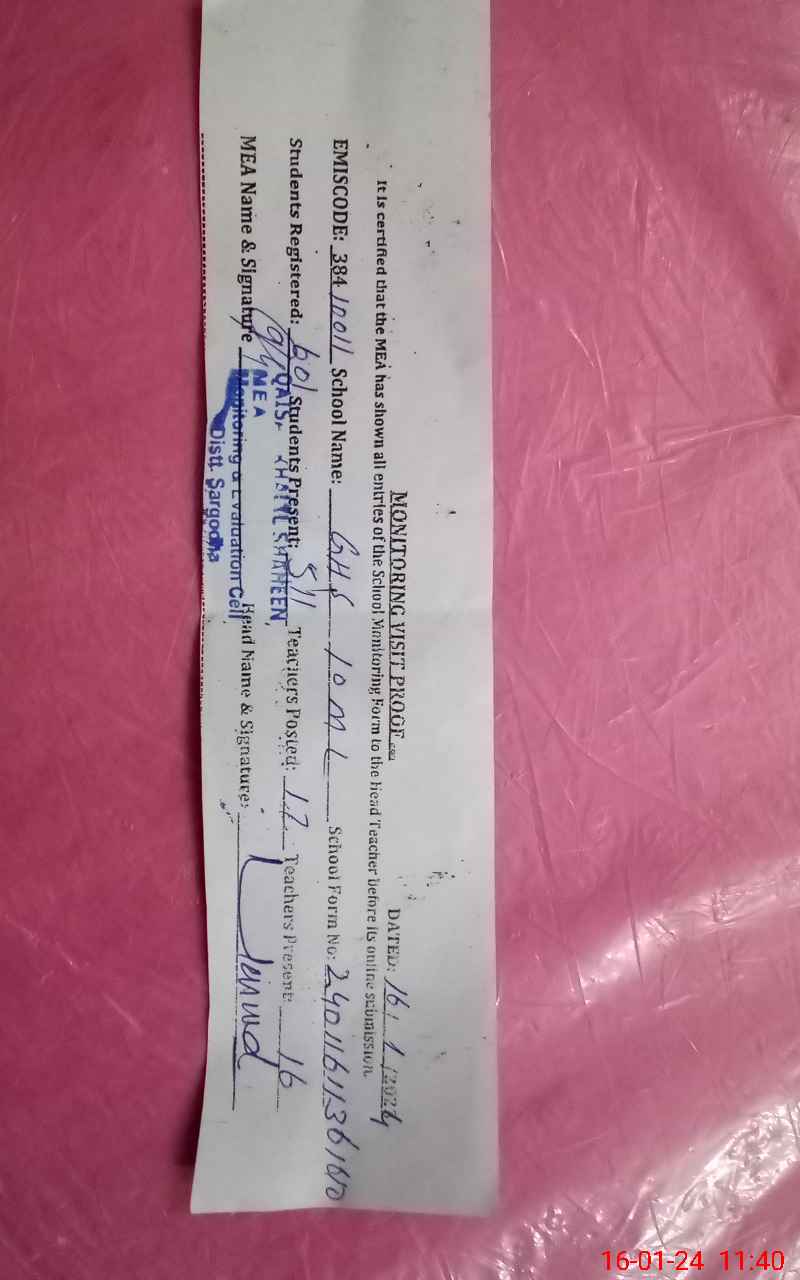 MONITORING VISIT PROOF
DATED: 16/1/2024
It is certified that the MEA has shown all entries of the School Monitoring Form to the Head Teacher before its online submission.
EMISCODE: 38410011 School Name: GHS 10 ML School Form No:
Students Registered: 601 Students Present: 511 Teachers Posted: 17 Teachers Present: 16
MEA Name & Signature Head Name & Signature:
SHAHEEN,
MEA
Monitoring & Evaluation Cell
Distt. Sargodha
16-01-24 11:40